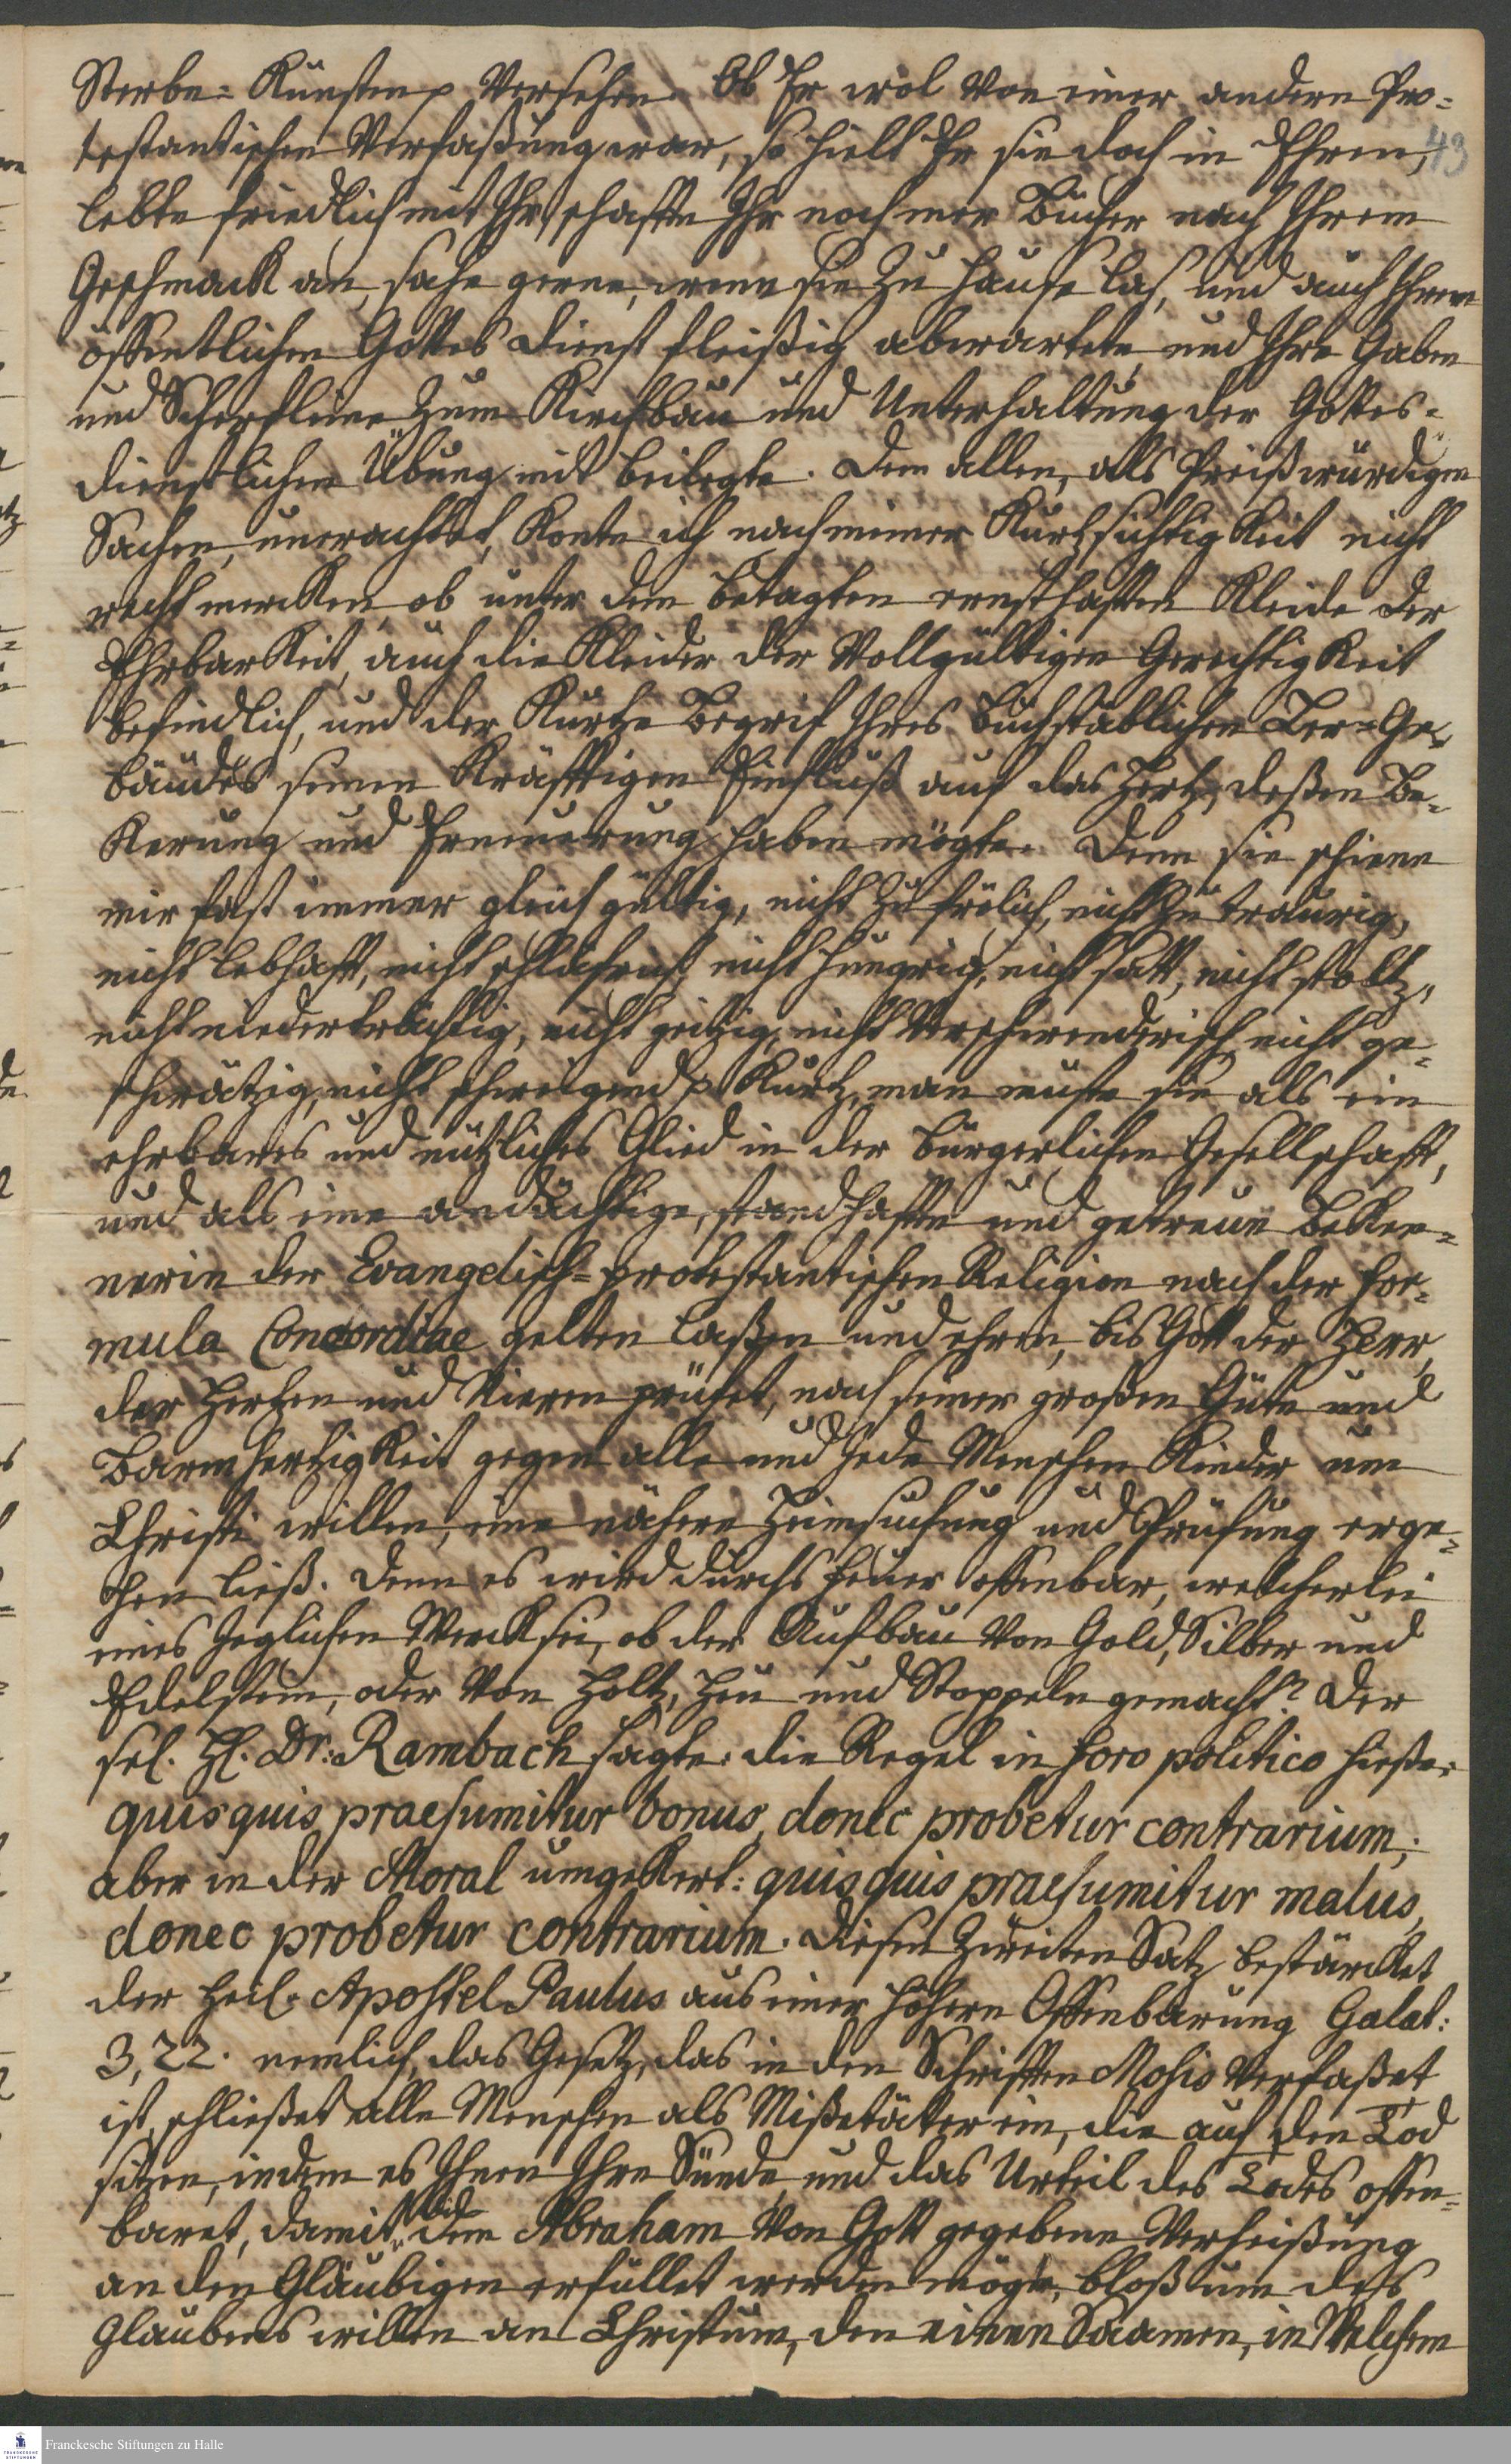 Sterbe- Künsten p versehen. Ob Er wol von einer andern Pro-
testantischen Verfaßung war, so hielt Er sie doch in Ehren,
43
lebte friedlich mit Ihr, schaffte Ihr noch mer Bücher nach Ihrem
Geschmack an, sahe gerne, wenn sie zu Hause las, und auch Ihren
öffentlichen Gottes Dienst fleißig abwartete, und Ihre Gaben
und Scherfleine zum Kirchbau und Unterhaltung der Gottes-
dienstlichen Übung mit beilegte. Dem allen, als Preißwürdigen
Sachen, unerachtet, konte ich nach meiner Kurtzsichtigkeit nicht
recht mercken, ob unter dem betagten ernsthafften Kleide der
Ehrbarkeit, auch die Kleider der Vollgültigen Gerechtigkeit
befindlich, und der kurtze Begrif Ihres buchstäblichen Ler-Ge-
bäudes seinen kräfftigen Einfluß auf das Hertz, deßen Be-
kerung und Erneuerung haben mögte. Denn sie schiene
mir fast immer gleichgültig, nicht zu frölich, nicht zu traurig,
nicht lebhafft, nicht schläfrich, nicht hungrig, nicht satt, nicht stoltz,
nicht niederträchtig, nicht geitzig, nicht verschwenderisch, nicht ge-
schwätzig, nicht schweigend p Kurtz, man muste sie als ein
ehrbares und nützliches Glied in der bürgerlichen Gesellschafft,
und als eine andächtige, standhaffte und getreue Beken-
nerin der Evangelisch-protestantischen Religion nach der For-
mula Concordiae gelten laßen und ehren, bis Gott der HErr,
der Hertzen und Nieren prüfet, nach seiner großen Güte und
Barmhertzigkeit gegen alle und jede Menschen Kinder um
Christi willen, eine nähere Heimsuchung und Prüfung erge-
hen ließ. Denn es wird durchs Feuer offenbar, welcherlei
eines jeglichen Werck sei, ob der Aufbau von Gold, Silber und
Edelstein, oder von Holtz, Heu und Stoppeln gemacht? Der
sel. H. Dr: Rambach sagte: die Regel in foro politico hieße:
quisquis praesumitur bonus, donec probetur contrarium;
aber in der Moral umgekert: quisquis praesumitur malus,
donec probetur contrarium. Diesen zweiten Satz bestärcket
der Heil. Apostel Paulus aus einer höhern Offenbarung Galat:
3, 22. nemlich, das Gesetz, das in den Schrifften Mosis verfaßet
ist, schließet alle Menschen als Mißetäter ein, die auf den Tod
sitzen, indem es Ihnen Ihre Sünde, und das Urteil des Todes offen-
baret, damit die dem Abraham von Gott gegebene Verheißung
an den Gläubigen erfüllet werden möge, bloß um des
Glaubens willen an Christum, den einen Saamen, in Welchem
Franckesche Stiftungen zu Halle